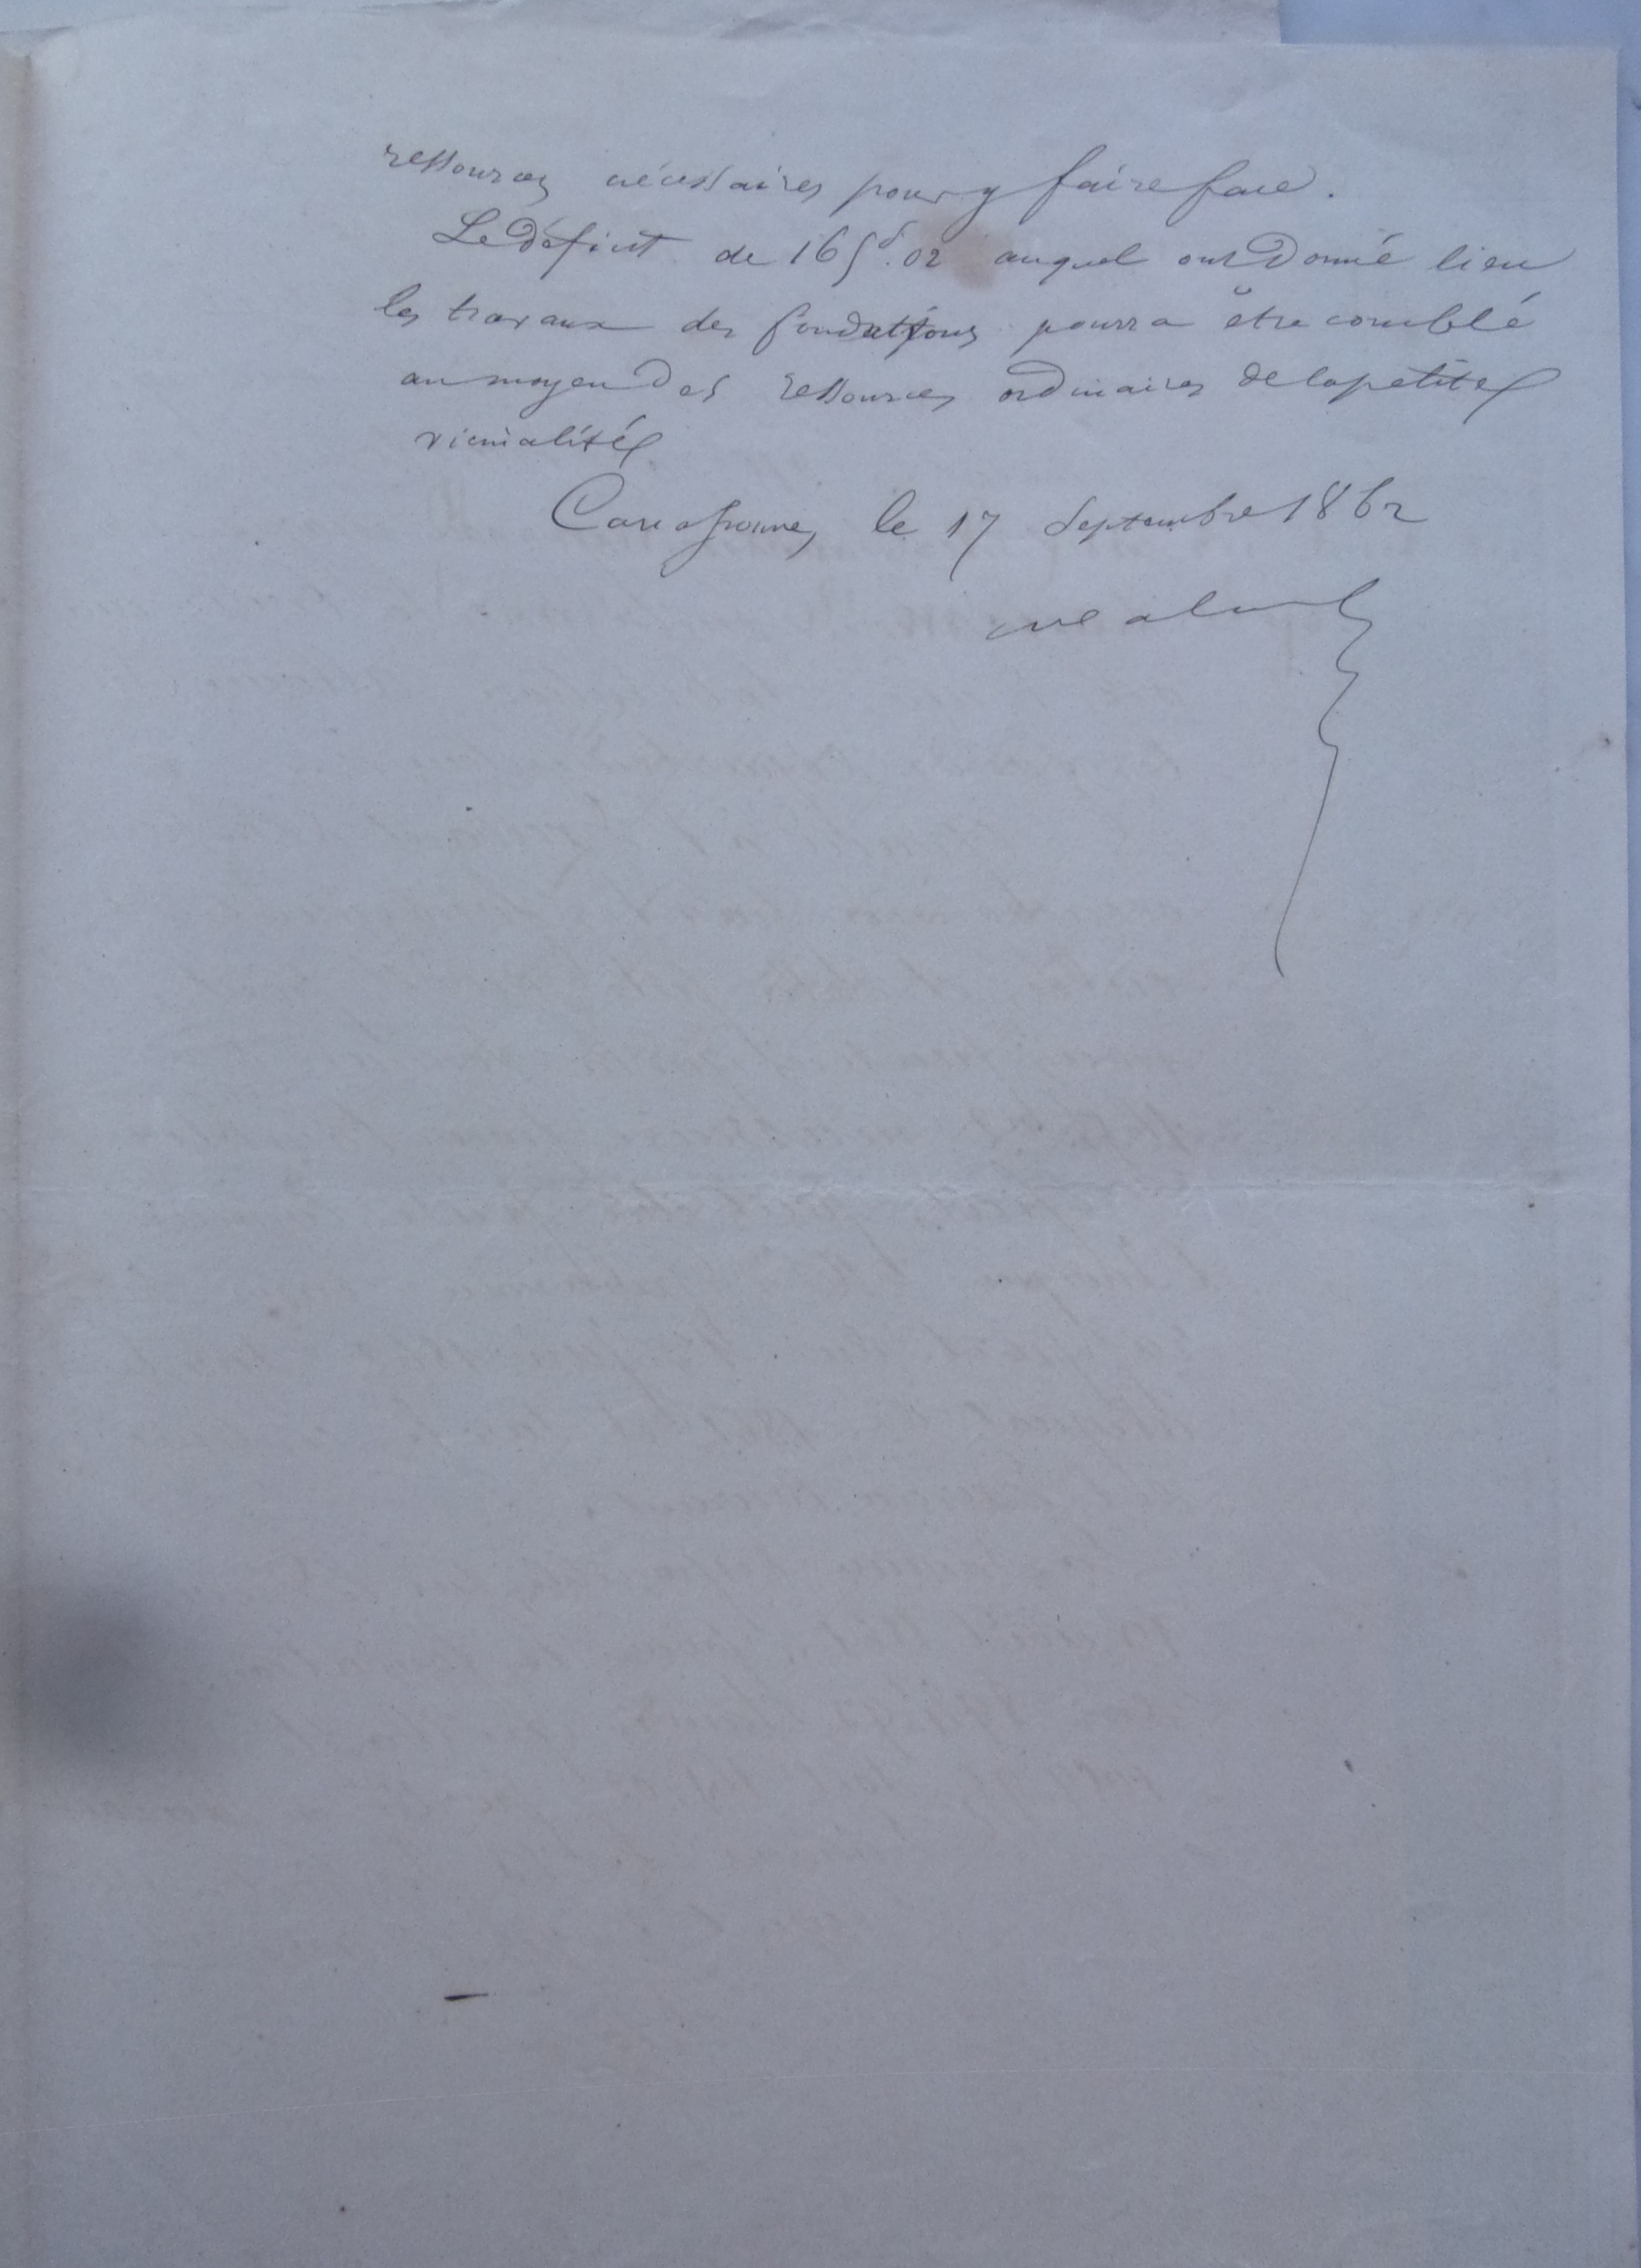 ressources nécessaires pour y faire face.
Le déficit de 165f.02 auquel ont donné lieu
les travaux des fondations pourra être comblé
au moyen des ressources ordinaires de la petite
vicinalité
Carcassonne, le 17 Septembre 1862